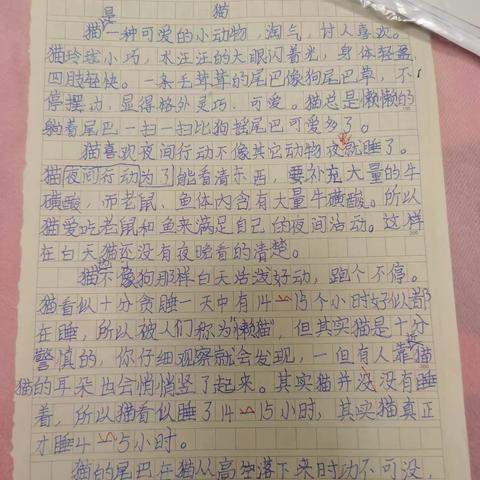 猫
猫是一种可爱的小动物，淘气，讨人喜欢。
猫玲珑小巧，水汪汪的大眼闪着光，身体轻盈，
四肢轻快。一条毛茸茸的尾巴像狗尾巴草，不
停摆动，显得格外灵巧、可爱。猫总是懒懒的
躺着尾巴一扫一扫比狗摇尾巴可爱多了。
猫喜欢夜间行动不像其它动物夜就睡了。
猫夜间行动为了能看清东西，要补充大量的牛
磺酸，而老鼠、鱼体内含有大量牛磺酸。所以
猫爱吃老鼠和鱼来满足自己的夜间活动。这样
在白天猫还没有夜晚看的清楚。
猫不像狗那样白天活泼好动，跑个不停。
猫看似十分贪睡一天中有14~15个小时好似都
在睡，所以被人们称为"懒猫"，但其实猫是十分
警慎的，你仔细观察就会发现，一但有人靠近猫
猫的耳朵也会悄悄竖了起来。其实猫并没没有睡
着，所以猫看似睡了14~15小时，其实猫真正
才睡4~5小时。
猫的尾巴在猫从高空落下来时功不可没，